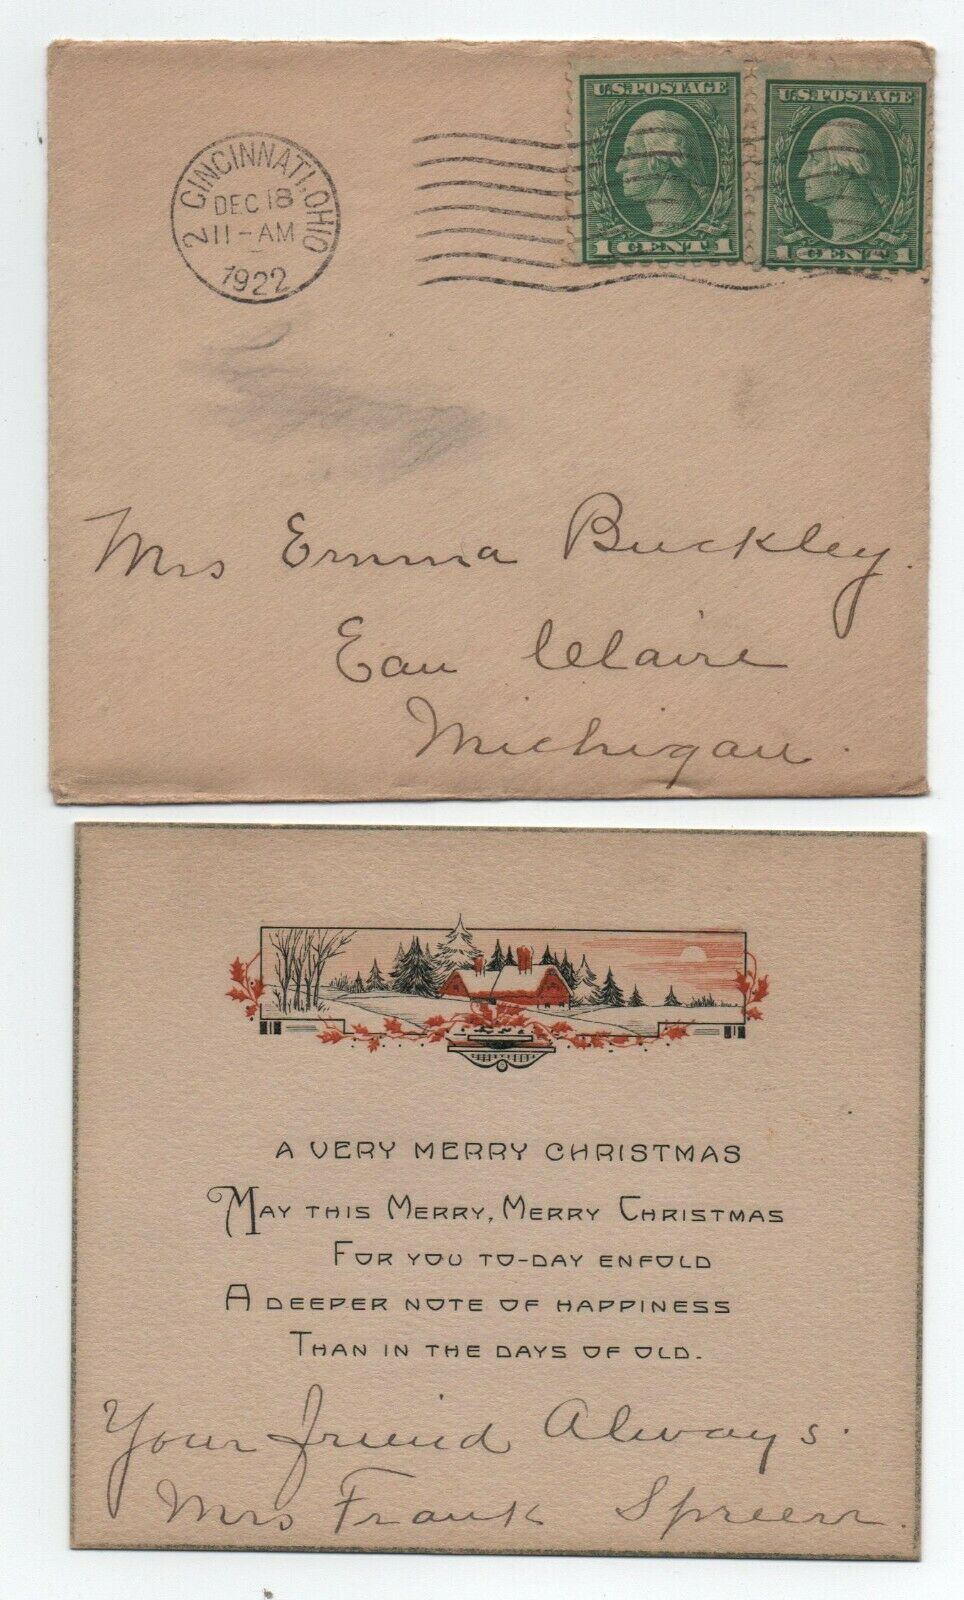 2 CINCINNATI, OHIO
DEC 18
11-AM
1922
U.S. POSTAGE
1 CENT 1
U.S. POSTAGE
1 CENT 1
Mrs Emma Buckley.
Eau Claire
Michigan.
A VERY MERRY CHRISTMAS
MAY THIS MERRY, MERRY CHRISTMAS
FOR YOU TO-DAY ENFOLD
A DEEPER NOTE OF HAPPINESS
THAN IN THE DAYS OF OLD.
Your friend Always.
Mrs Frank Spreen.